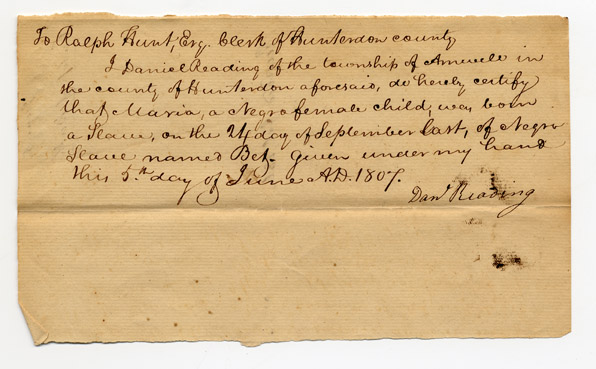 To Ralph Hunt, Esq. Clerk of Hunterdon county
I Daniel Reading of the township of Amwell in
the county of Hunterdon aforesaid, do hereby certify
that Maria, a Negro female child, was born
a Slave, on the 24 day of September last, of Negro
Slave named Bet. Given under my hand
this 5th day of June A.D. 1807.
Danl Reading